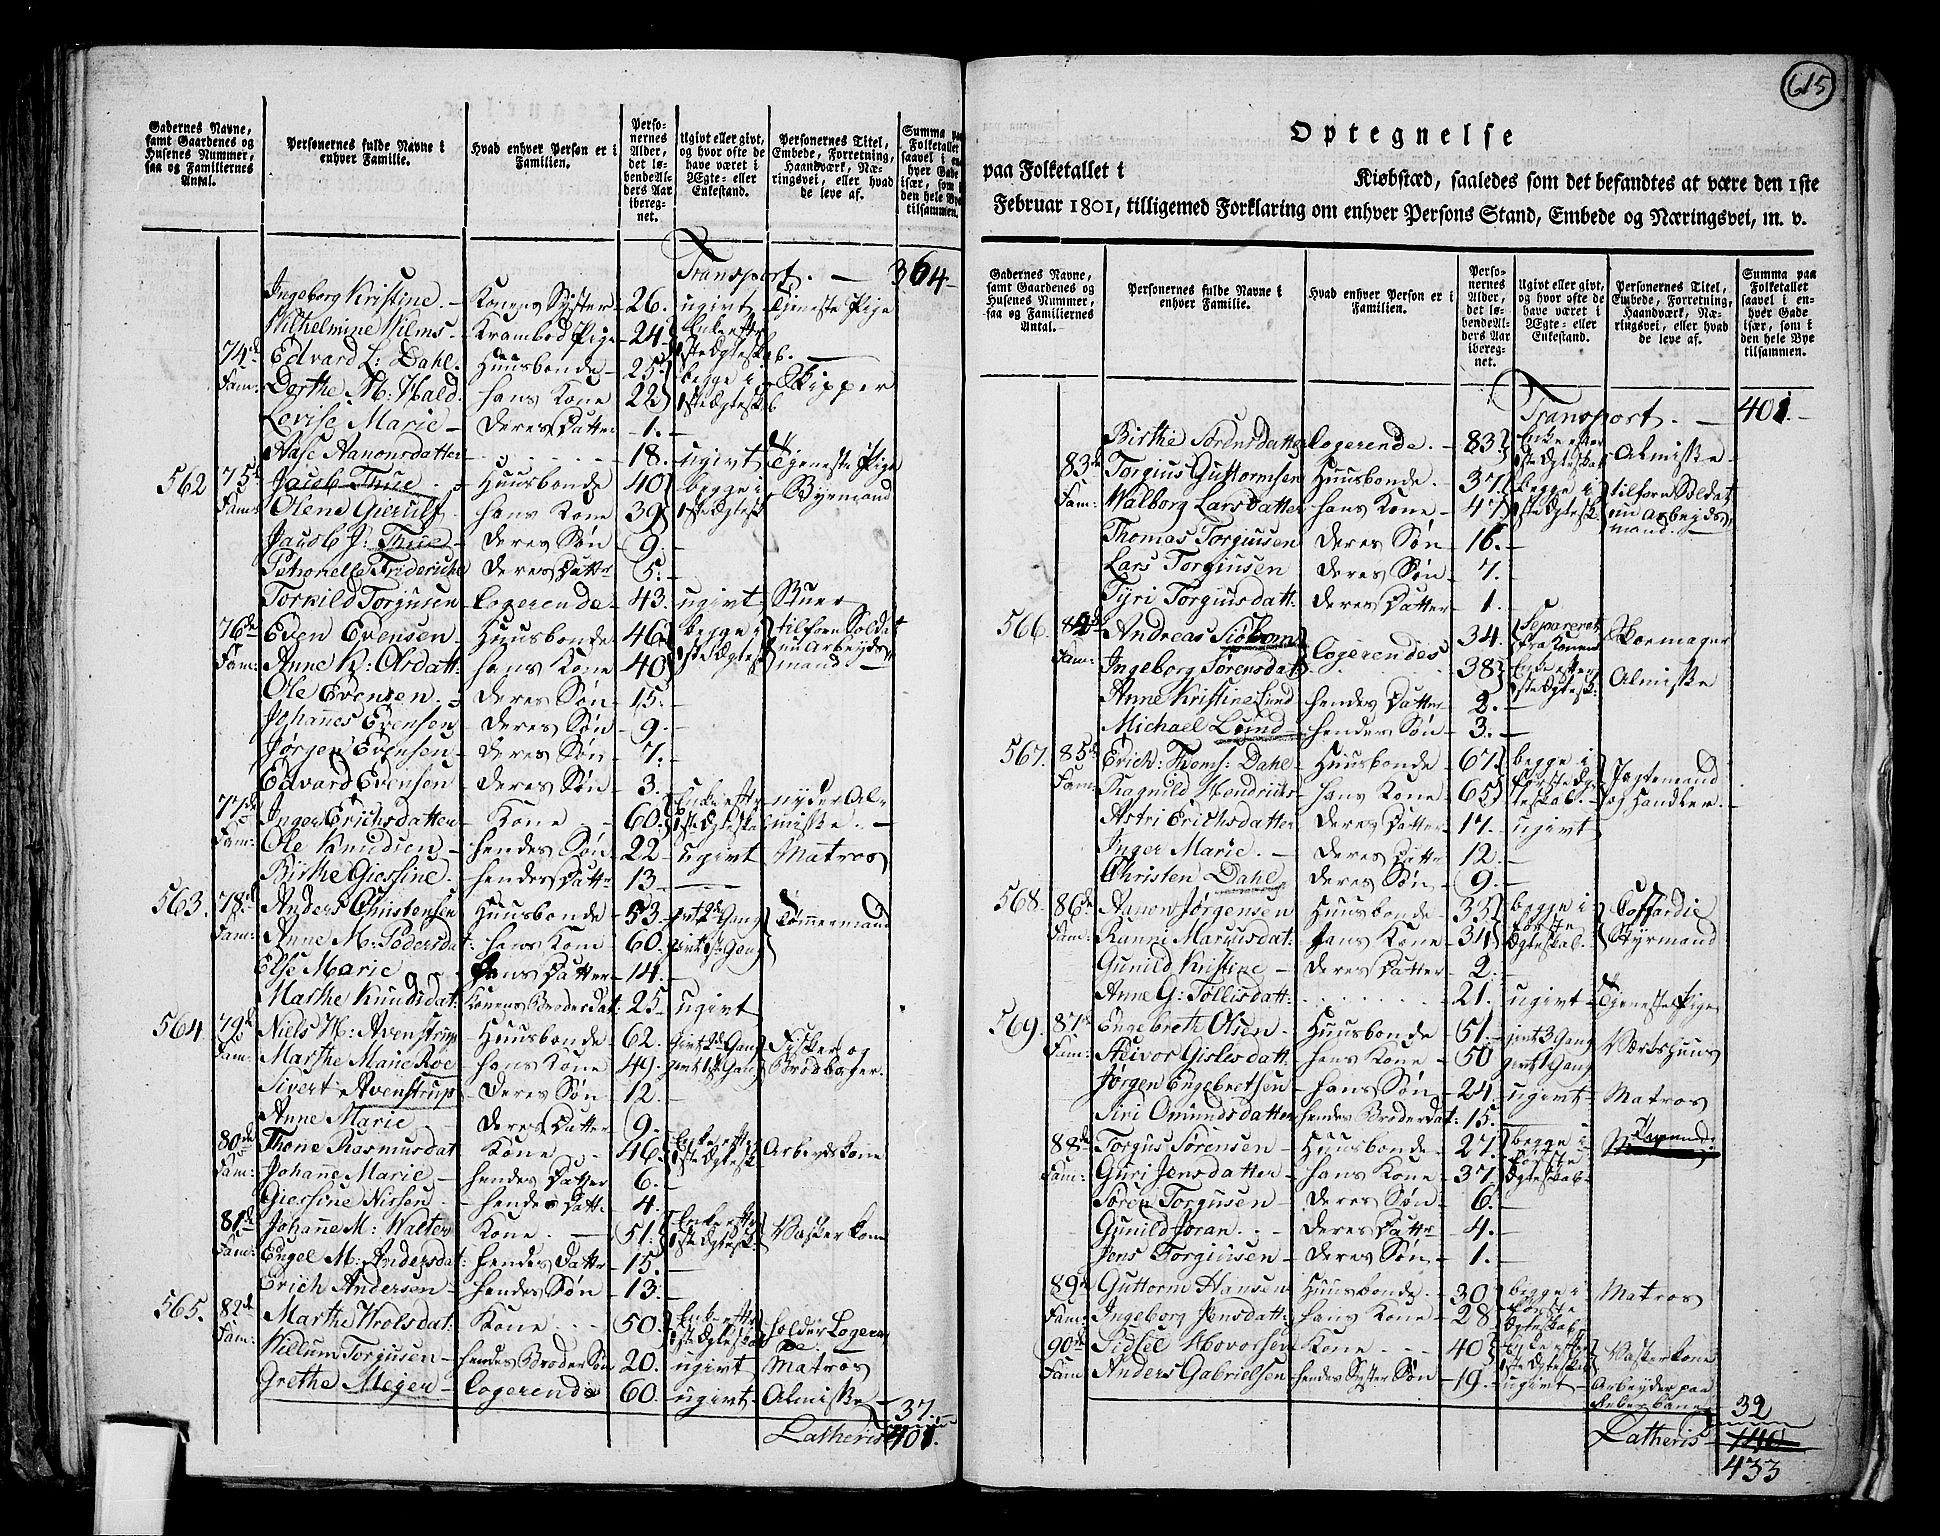 Gadernes Navne, samt Gaardenes og Husenes Nummer, saa og Familiernes Antal.
Personernes fulde Navne i enhver Familie.
Hvad enhver Person er i Familien.
Personernes Alder, det løbende Alders Aar iberegnet.
Ugivt eller givt, og hvor ofte de have været i Ægte- eller Enkestand.
Personernes Titel, Embede, Forretning, Haandværk, Næringsvei, eller hvad de leve af.
Summa paa Folketallet saavel i enhver Gade især, som i den hele Bye tilsammen.
Transport. — 364
Ingeborg Kristine. — Konens Syster — 26. ugivt Tjeneste Pige
Wilhelmine Wilms — Krambod Pige — 24. Enke efter 1ste Ægteskab.
74de Fam: Edvard L: Dahl. Huusbonde — 25 begge i 1ste Ægtesk Skipper
Dorthe M: Hald. hans Kone 22
Lovise Marie — deres Datter — 1. —
Aase Aanonsdatter — 18. ugivt Tjeneste Pige
562 75de Fam: Jacob Thue Huusbonde 40 begge i 1ste Ægtesk Byemand
Olene Gierulf hans Kone 39
Jacob J: Thue — deres Søn 9. —
Petronelle Frideriche deres Datter 5. —
Torkild Torgusen Logerende — 43. ugivt Stuer
76de Fam: Even Evensen — Huusbonde 46 begge i 1ste Ægtesk tilforn Soldat nu Arbeyds mand
Anne K: Olsdatt: hans Kone 40
Ole Evensen. deres Søn — 15. —
Johannes Evensen deres Søn — 9. —
Jørgen Evensen — deres Søn — 7. —
Edvard Evensen — deres Søn — 3. —
77de Fam: Inger Erichsdatter — Kone — 60. Enke efter 1ste Ægteskab nyder Almisse. —
Ole Knudsen — hendes Søn — 22 — ugivt — Matros
Birthe Giessine. — hendes Datter 13 —
563. 78de Fam: Anders Christensen Huusbonde — 53. givt 2de Gang Tømmermand
Anne M: Pedersdat: hans Kone — 60. givt 1ste Gang
Else Marie hans Datter — 14. —
Marthe Knudsdat: Konens Brodersdat: 25 — ugivt
564 79de Fam: Niels H: Avenstrup — Huusbonde 62. givt 2de Gang Fisker og Brodbager.
Marthe Marie Roe hans Kone — 49. givt 1ste Gang
Sivert Avenstrup — deres Søn — 12. —
Anne Marie deres Datter — 9. —
80de Fam: Thone Rasmusdat Kone — 46. Enke efter 1ste Ægtesk Arbeidskone
Johanne Marie — hendes Datter — 6. —
Giessine Nissen — hendes Datt: — 4. —
81de Fam: Johanne M: Walter Kone — 51. Enke efter 1ste Ægtesk. Vaskerkone
Engel M: Andersdat: hendes Datter 15. —
Erich Andersen — hendes Søn — 13. —
565. 82de Fam: Marthe Trolsdat: Kone — 50. Enke efter 1ste Ægteskab holder Logerende.
Willum Torgusen — hendes Broder Søn 20. ugivt Matros
Grethe Meyer — Logerende 60. ugivt — Almisse
37.
Latheris 401.
615
Optegnelse
paa Folketallet i Kiøbstæd, saaledes som det befandtes at være den 1ste
Februar 1801, tilligemed Forklaring om enhver Persons Stand, Embede og Næringsvei, m. v.
Gadernes Navne, samt Gaardenes og Husenes Nummer, saa og Familiernes Antal.
Personernes fulde Navne i enhver Familie.
Hvad enhver Person er i Familien.
Personernes Alder, det løbende Alders Aar iberegnet.
Ugivt eller givt, og hvor ofte de have været i Ægte- eller Enkestand.
Personernes Titel, Embede, Forretning, Haandværk, Næringsvei, eller hvad de leve af.
Summa paa Folketallet saavel i enhver Gade især, som i den hele Bye tilsammen.
Transport. — 401. —
Birthe Sørensdatter Logerende. — 83. Enke efter 1ste Ægteskab Almisse —
83de Fam: Torgius Guttormsen Huusbonde. — 37. begge i 1ste Ægtesk. tilforn Soldat nu Arbeyds mand. —
Walborg Larsdatter hans Kone — 47
Thomas Torgiusen deres Søn — 16. —
Lars Torgiusen deres Søn — 7. —
Tyri Torgiusdatt: deres Datter — 1. —
566. 84de Fam: Andreas Sioborn Logerendes 34. Separeret fra Konen Skomager
Ingeborg Sørensdat: 38 Enke efter 1ste Ægtesk. Almisse
Anne Kristine Lund hendes Datter — 2. —
Michael Lund — hendes Søn — 3. —
567. 85de Fam: Erich: Thoms: Dahl — Huusbonde — 67. begge i første Ægteskab. Jagtemand og Handler. —
Ragnild Hendrichs — hans Kone 65
Astri Erichsdatter deres Datter — 17. — ugivt
Inger Marie. — deres Datter 12. —
Christen Dahl deres Søn — 9. —
568. 86de Fam: Aanon Jørgensen Huusbonde — 35 begge i første Ægteskab. Coffardie Styrmand
Ranne Marcusdat: hans Kone — 34
Gunild Kristine — deres Datter — 2. —
Anne G: Tollisdatt: — 21. ugivt — Tjeneste Pige
569. 87de Fam: Engebreth Olsen. — Huusbonde — 51. — givt 3 Gang Vertshuus
Aadvor Gislesdatt hans Kone — 50 givt 1 Gang
Jørgen Engebretsen — hans Søn — 24. ugivt — Matros
Siri Omundsdatter hendes Broderdat: 15. —
88de Fam: Torgus Sørensen — Huusbonde — 27. begge i første Ægteskab.
Guri Jensdatter — hans Kone — 37.
Søren Torgusen — deres Søn — 6. —
Gunild Joran. — deres Datter 4. —
Jens Torgiusen — deres Søn — 1. —
89de Fam: Guttorm Hansen Huusbonde. — 30 begge i første Ægteskab. Matros
Ingeborg Jensdatt: hans Kone — 28
90de Fam Sidsel Hovolsen Kone — 40 Enke efter 1ste Ægteskab Vaskerkone
Anders Gabrielsen hendes Syster Søn — 19. — ugivt — Arbeyder paa Reberbane
32
Latheris 440
433